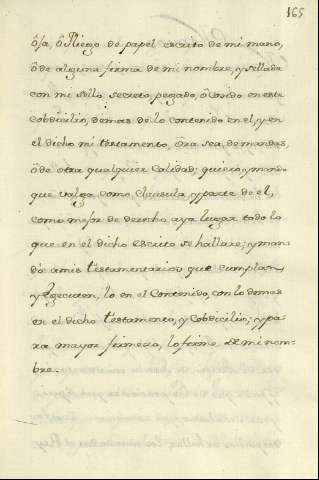 165
ôja, ô Pliego de papel escrito de mi mano,
ô de alguna firma de mi nombre, y sellada
con mi sello secreto, pegado, ô Cosido en este
Cobdicilio, demas de lo contenido en el, y en
el dicho mi testamento, Ora sea, de mandas,
ô de otra qualquier Calidad; quiero, y mando
que valga como Clausula, y parte de el,
como mejor de derecho aya lugar todo lo
que en el dicho escrito se hallare; y man-
do a mis testamentarios que cumplan,
y Egecuten, lo en el Contenido, con lo demas
en el dicho testamento, y Cobdicilio; y pa-
ra mayor firmeza, lo firme de mi nom-
bre.